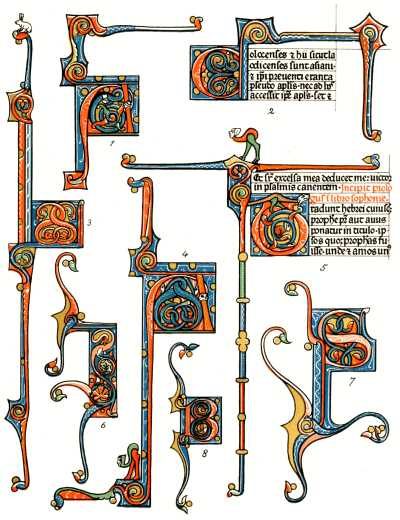 1
olocenses ⁊ hii sicut la
odicenses sunt asiani·
⁊ ip̄i preventi erant a
pseudo ap̄lis· nec ad
accessit ip̄e ap̄ls· set ⁊
2
3
4
Et sr̄ excelsa mea deducet me: victor
in psalmis canentem. Incipit prolo
gus libro sophonie.
radunt hebrei cuiusc
prophe pr̄ aut avus
ponatur in titulo· ip
sos quoq; prophas fu
isse· unde ⁊ amos un
5
6
7
8